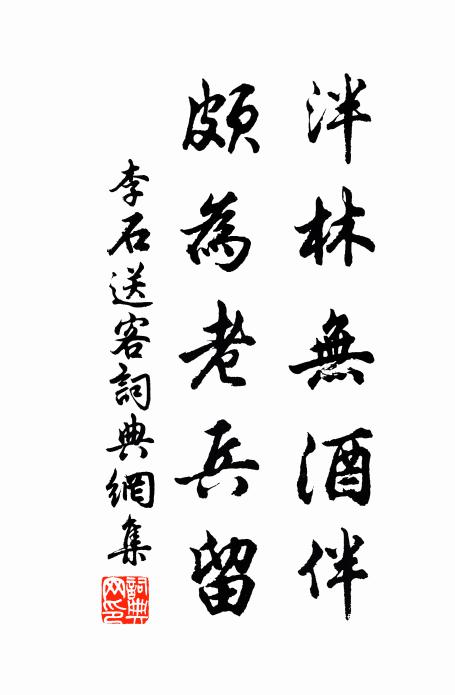 泮林無酒伴
頗為老兵留
李石送客詞典網集
詞典网印